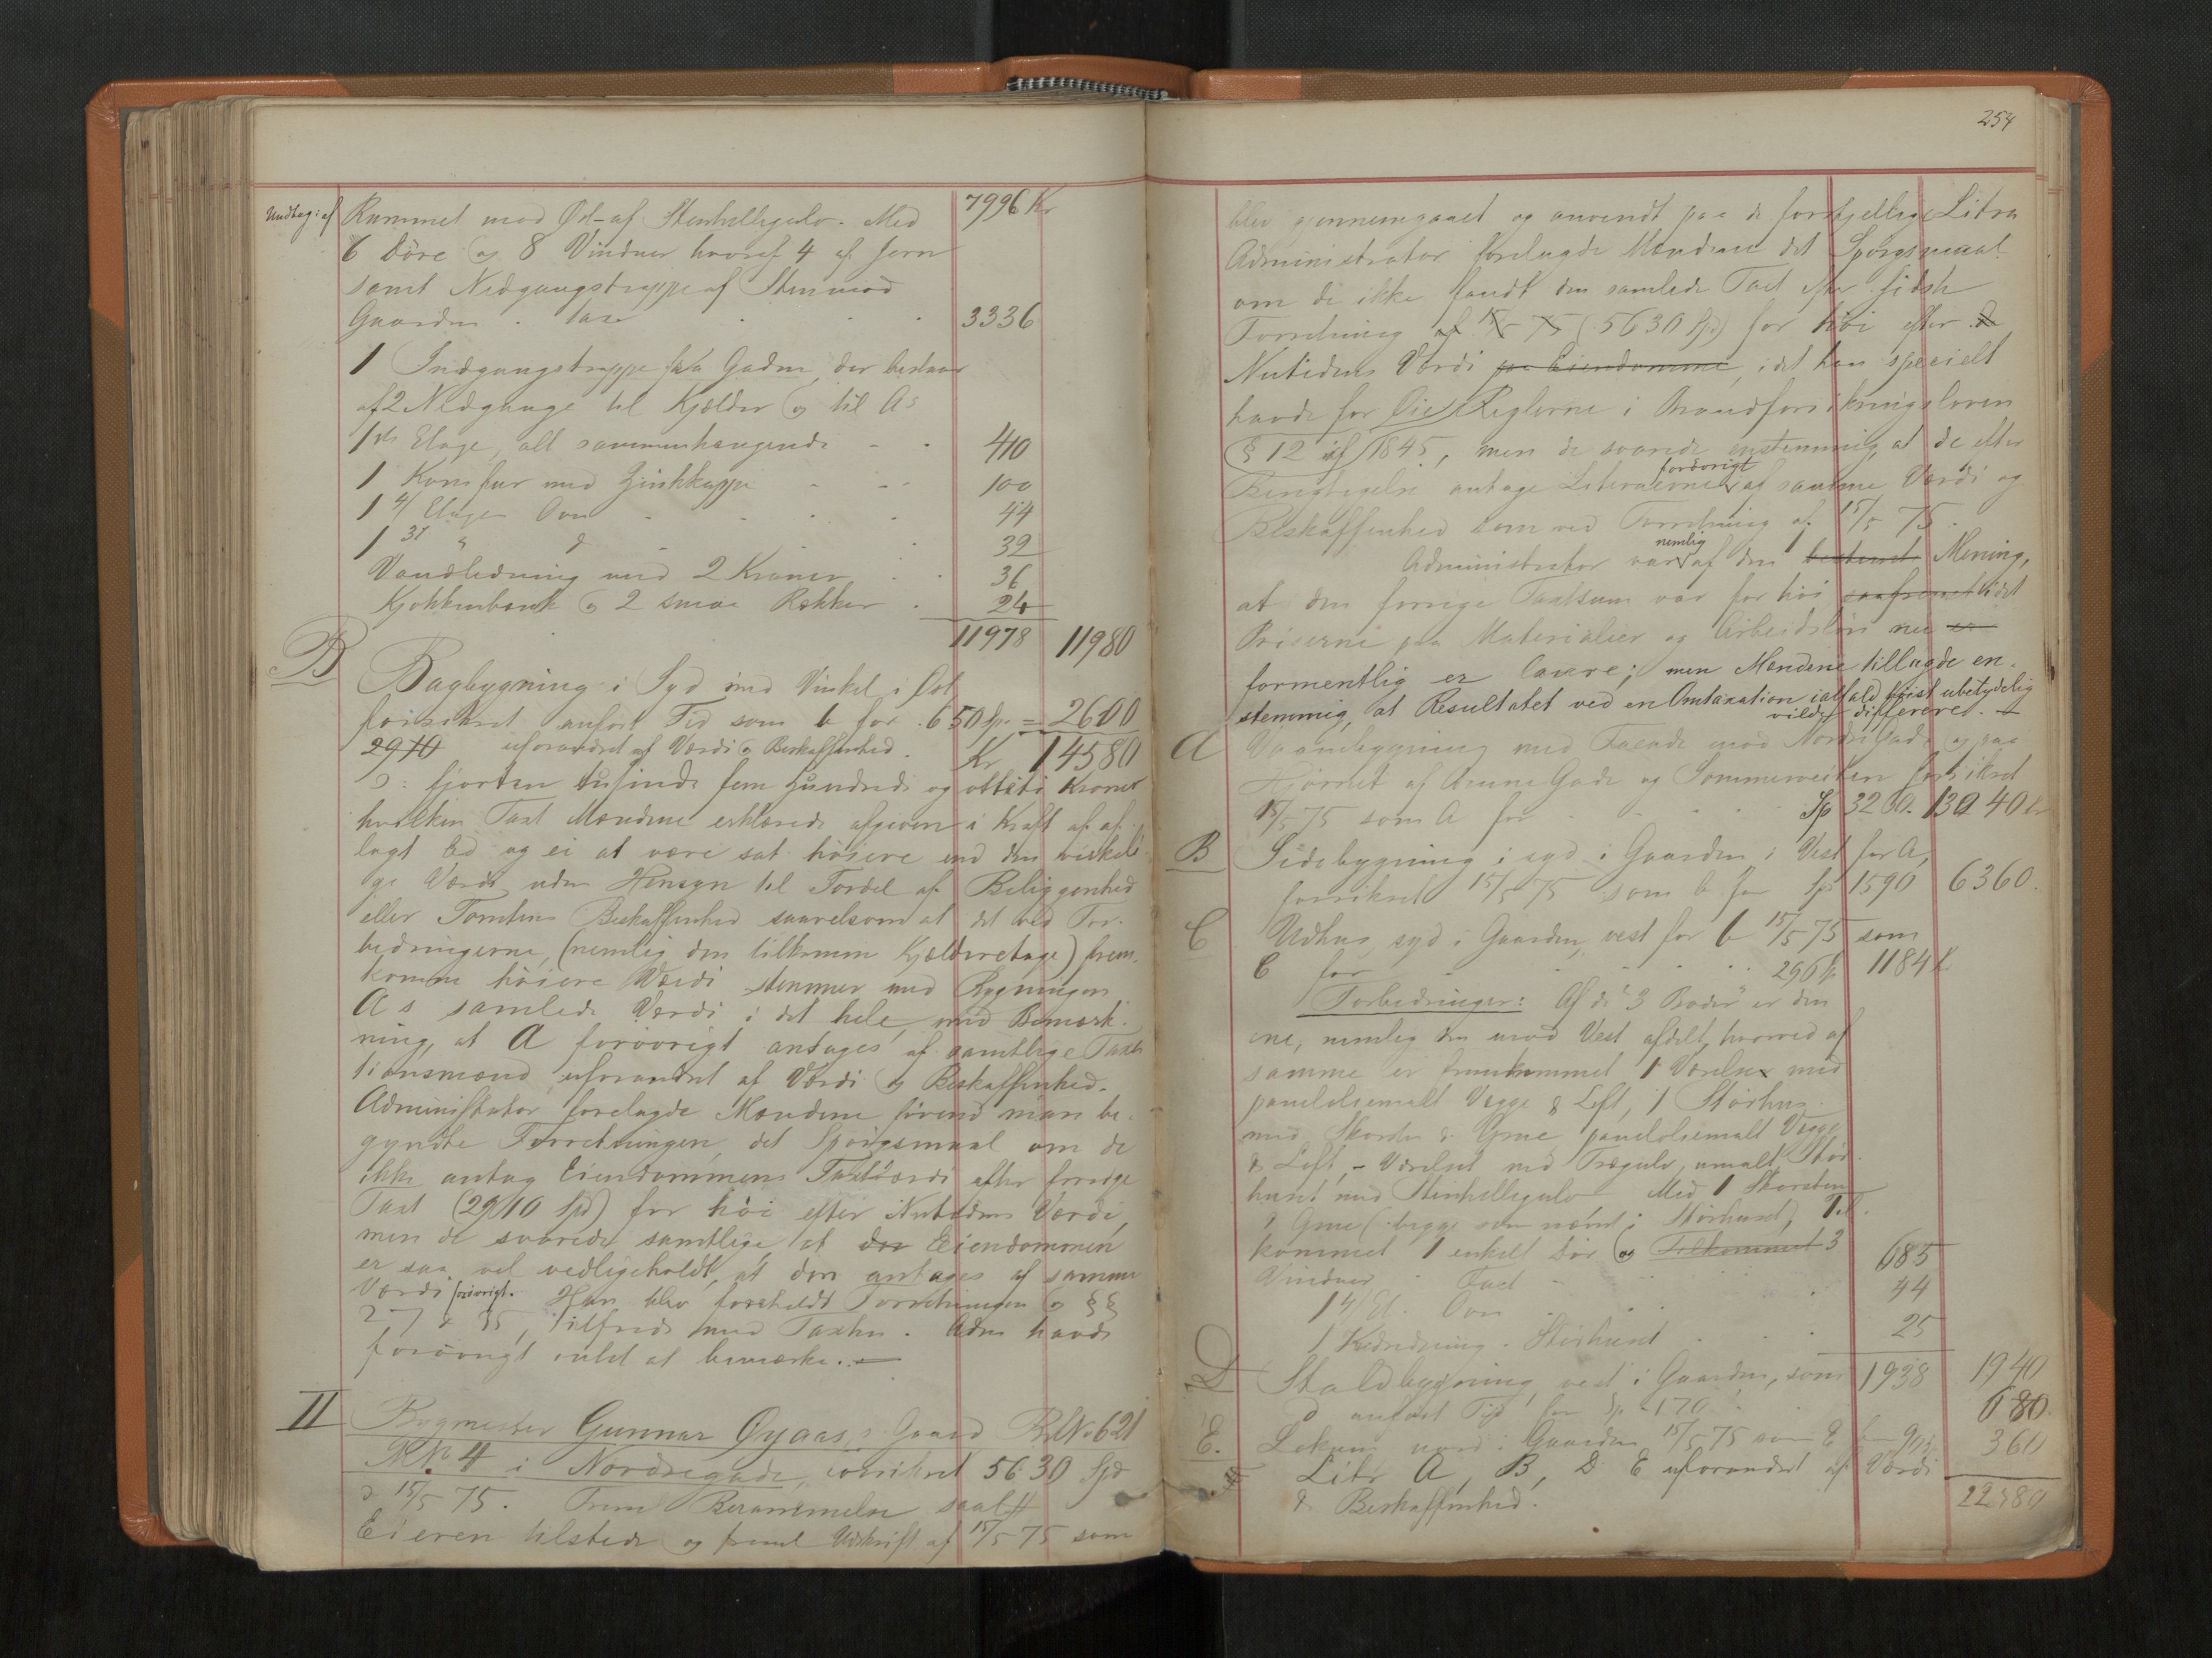 Undtag: af Rummet mod Øst af Stenhellegulv. Med 7996 Kr
6 Döre og 8 Vinduer hvoraf 4 af Jern
samt Nedgangstrappe af Sten mod
Gaarden . Taxt . . . 3336
1 Indgangstrappe fra Gaden, der bestaar
af 2 Nedgange til Kjælder og til As
1ste Etage, alt sammenhængende - - 410
1 Komfur med Zinkkappe - - - 100
1 4/ Etages Ovn - . . . 44
1 3/ " d - . 32
Vandledning med 2 Kraner . . 36
Kjøkkenbænk og 2 smaa Rækker . 24
11978 11980
B Bagbygning i Syd med Vinkel i Øst
forsikret anfört Tid som b for 650 Sp = 2600
2910 uforandret af Værdi og Beskaffenhed. Kr 14580
ɔ: fjorten tusinde fem hundrede og otteti Kroner
hvilken Taxt Mændene erklærede afgiven i Kraft af af-
lagt Ed og ei at være sat høiere end den virkeli-
ge Værdi uden Hensyn til Fordel af Beliggenhed
eller Tomtens Beskaffenhed saavelsom at det ved For-
bedringerne, (nemlig den tilkomne Kjælderetage) frem-
komne höiere Værdi stemmer med Bygningen
As samlede Værdi i det hele, med Bemærk-
ning, at A forövrigt antages af samtlige Taxa-
tionsmænd uforandret af Værdi og Beskaffenhed.
Administrator forelagde Mændene förend man be-
gyndte Forretningen det Spörgsmaal om de
ikke antog Eiendommens Taxtværdi efter forrige
Taxt (2910 Spd) for höi efter Nutidens Værdi,
men de svarede samtlige, at den Eiendommen
er saa vel vedligeholdt, at den antages af samme
Værdi forövrigt. Han blev foreholdt Forretningen og §§
27 & 35, tilfreds med Taxten. Adm havde
forövrigt intet at bemærke. —
II Bygmester Gunnar Øyaas's Gaard BNo 621
RN 4 i Nordregade, forsikret 5630 Spd
d 15/5 75. Frem Berammelse saal#
Eieren tilstede og freml Udskrift af 15/5 75 som
254
blev gjennemgaaet og anvendt paa de forskjellige Litra
Administrator forelagde Mændene det Spörgsmaal
om de ikke fandt den samlede Taxt efter sidste
Forretning af 15/5 75 (5630 Spd) for höi efter d
Nutidens Værdi paa Eiendommene, idet han specielt
havde for Øie Reglerne i Brandforsikringsloven
§ 12 af 1845, men de svarede enstemmig, at de efter
Besigtigelse antage Literaerne forövrigt af samme Værdi og
Beskaffenhed som ved Forretning af 15/5 75.
Administrator var nemlig af den bestemte Mening,
at den forrige Taxtsum var for höi saafremt idet
Priserne paa Materialier og Arbeidslön nu er
formentlig er lavere; men Mændene tillagde en-
stemmig, at Resultatet ved en Omtaxation ialfald höist ubetydelig
vilde differeret. —
A Vaanebygning med Facade mod Nordregade og paa
Hjörnet af Brune Gade og Sommerveiten forsikret
15/5 75 som A for . - - . Sp 3260. 13040 Kr
B Sidebygning i syd i Gaarden i Vest for A,
forsikret 15/5 75 som b for Sp 1590 6360.
C Udhus, syd i Gaarden, vest for b 15/5 75 som
C for . . . . . . 296 Sp 1184 K
Forbedringer: Af de "3 Boder" er den
ene, nemlig den mod Vest afdelt, hvorved af
samme er fremkommet 1 Værelse med
paneloliemalt Vægge & Loft, 1 Störhus
med Skorsten & Grue paneloliemalt Vægge
& Loft, - Værelset med Trægulv, umalt, Stör-
huset med Stenhellegulv. Med 1 Skorsten
& Grue (begge som nævnt i Störhuset) Til-
kommet 1 enkelt Dör og Tilkommet 3
Vinduer . Taxt - . . . . 685
1 4/ Et. Ovn . . . . . 44
1 Störhuset . . . 25
1938 1940
D Staldbygning vest i Gaarden, som
d anfört Tid for Sp 170 . . 680.
E. Lokum nord i Gaarden 15/5 75 som E for 90 Sp 360
Litr A, B, D E uforandret af Værdi
& Beskaffenhed. 22380